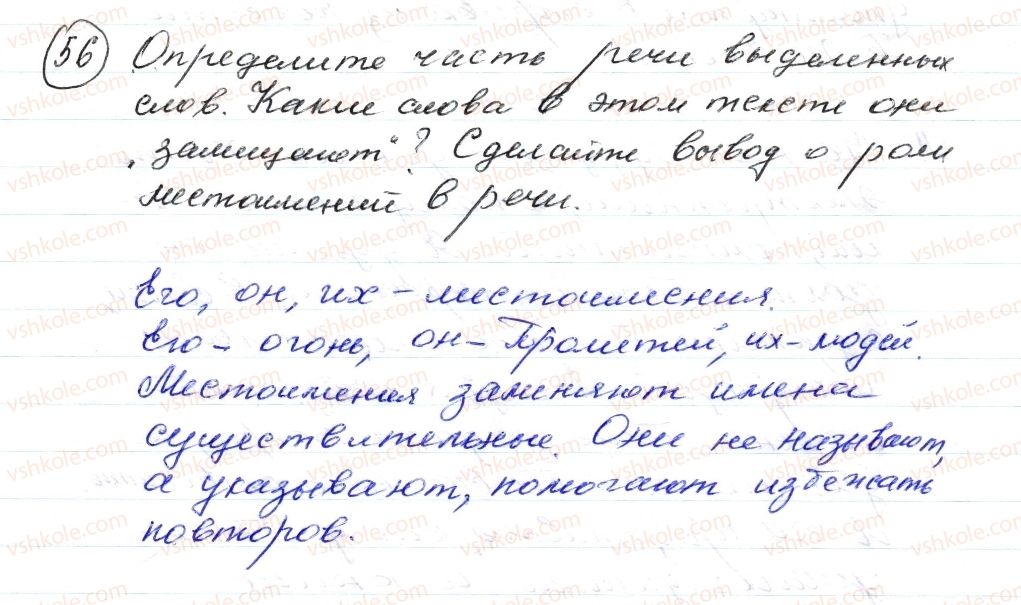 56 Определите часть речи выделенных
слов. Какие слова в этом тексте они
„замещают“? Сделайте вывод о роли
местоимений в речи.
Его, он, их – местоимения.
Его – огонь, он – Прометей, их – людей.
Местоимения заменяют имена
существительные. Они не называют,
а указывают, помогают избежать
повторов.